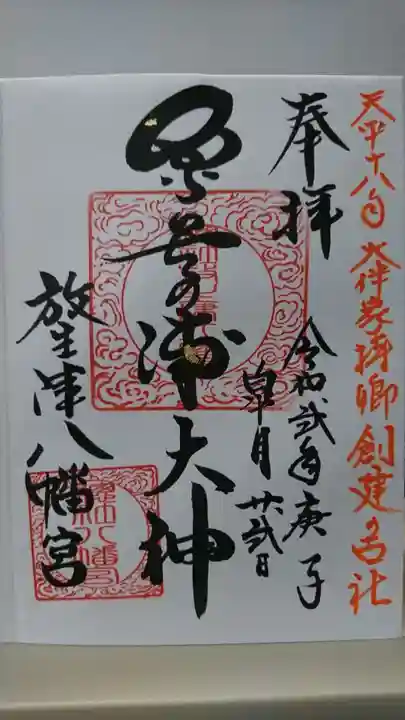 天平十八年 大伴家持卿創建の古社
奉拝
令和弐年庚子
皐月廿弐日
奈呉の浦大神
放生津八幡宮